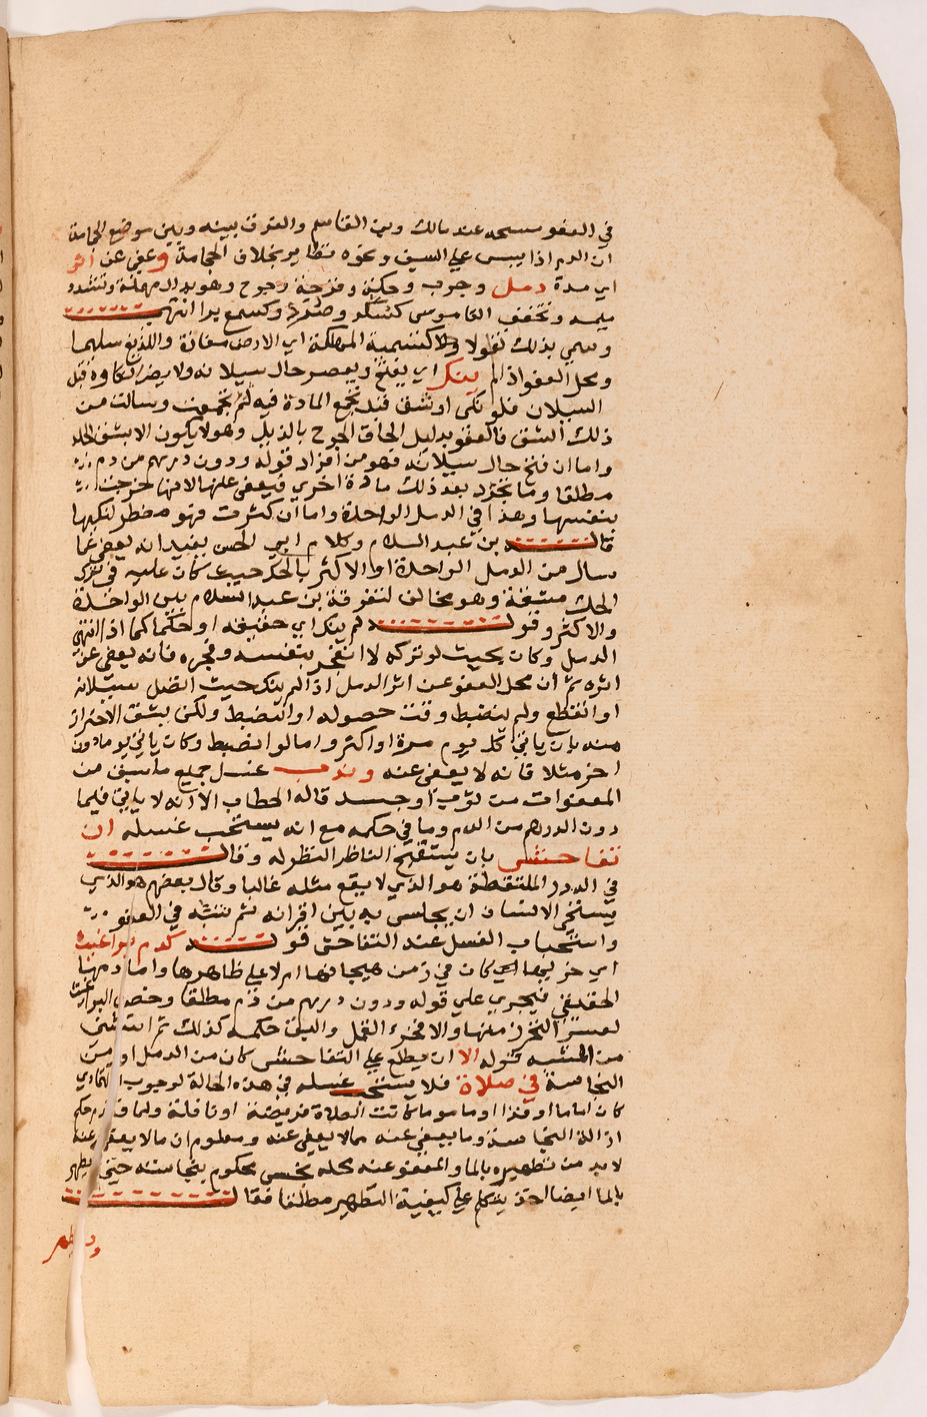 في العفو مسحه عند مالك وبين القاسم والفرق بينه وبين موضع الحجامة
ان الدم اذا يبس علي السيف ونحوه تطاير بخلاف الحجامة وعفي عن اثر
اي مدة دمل وجرب وحكة وقرحة وجرح وهو بدال مهملة وتشدد
ميمه وتخفف القاموس كسكر وصرد وكسمع برا انتهي
وسمي بذلك تفولا كتسمية المهلكة اي الارض مفازة واللديغ سليما
ومحل العفو اذا لم ينك اي يفتح ويعصر حال سيلانه ولا يضر نكاوه قبل
السيلان فلو نكي او شق قبل تجمع المادة فيه ثم تجمعت وسالت من
ذلك الشق فالعفو بدليل الحاق الجرح بالدمل وهو لا يكون الا بشق الجلد
واما ان فتح حال سيلانه فهو من افراد قوله ودون درهم من دم
مطلقا وما تجدد بعد ذلك مادة اخري فيعفي عنها لانها خرجت
بنفسها وهذا في الدمل الواحدة واما ان كثرت فهو مضطر لنكيها
قال بن عبد السلام وكلام ابي الحسن يفيد انه يعفي عما
سال من الدمل الواحدة او الاكثر بالحك حيث كان عليه في ترك
الحك مشقة وهو مخالف لتفرقة بن عبد السلام بين الواحدة
والاكثر وقوله لم ينك اي حقيقة او حكما كما اذا انتهي
الدمل وكان بحيث لو تركه لانفجر بنفسه وفجره فانه يعفي عن
اثره ثم ان محل العفو عن اثر الدمل اذا لم ينك حيث اتصل سيلانه
او انقطع ولم ينضبط وقت حصوله او انضبط ولكن يشق الاحتراز
منه بان ياتي كل يوم مرة او اكثر واما لو انضبط وكان ياتي يوما دون
اخر مثلا فانه لا يعفي عنه وندب غسل جميع ما سبق من
المعفوات من ثوب او جسد قاله الحطاب الا انه لا ياتي فيما
دون الدرهم من الدم وما في حكمه مع انه يستحب غسله ان
تفاحش بان يستقبح الناظر النظر له وقال
في الدرر الملتقطة هو الذي لا يقع مثله غالبا وقال بعضهم هو الذي
يستحي الانسان ان يجلس به بين اقرانه ثم شبه في العفو
واستحباب الغسل عند التفاحش قوله كدم براغيث
اي خرئها كان في زمن هيجانها ام لا علي ظاهرها واما دمها
الحقيقي فيجري علي قوله ودون درهم من دم مطلقا وخص البراغيث
لعسر التحرز منها والا فخرء القمل والبق حكمه كذلك ثم استثني
من المشبه قوله الا ان يطلع علي التفاحش كان من الدمل او من
النجاسة في صلاة فلا يستحب غسله في هذه الحالة لوجوب التمادي
كان اماما او فذا او ماموما كانت الصلاة فريضة او نافلة ولما قدم حكم
ازالة النجاسة وما يعفي عنه مما لا يعفي عنه ومعلوم ان ما لا يعفي عنه
لا بد من تطهيره بالما والمعفو عنه محله نجس محكوم بنجاسته حتي يطهر
بالما ايضا اخذ يتكلم علي كيفية التطهير مطلقا فقال